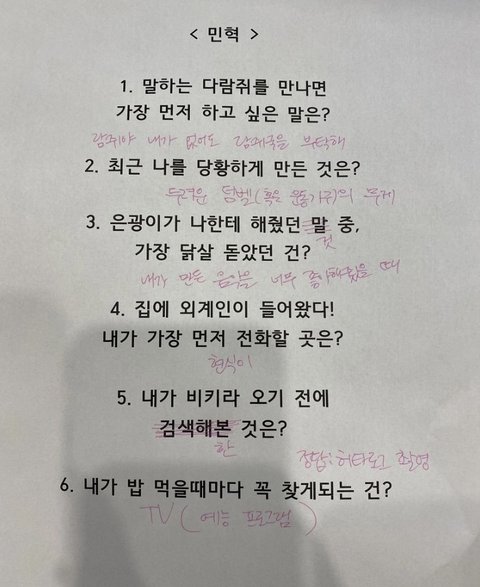 < 민혁 >
1. 말하는 다람쥐를 만나면
가장 먼저 하고 싶은 말은?
람쥐야 내가 없어도 람쥐국을 부탁해
2. 최근 나를 당황하게 만든 것은?
두려운 덤벨(혹은 운동기구)의 무게
3. 은광이가 나한테 해줬던 말 중,
것
가장 닭살 돋았던 건?
내가 만든 음악을 너무 좋아해줬을 때
4. 집에 외계인이 들어왔다!
내가 가장 먼저 전화할 곳은?
현식이
5. 내가 비키라 오기 전에
검색해본 것은?
한
정답: 허타로그 촬영
6. 내가 밥 먹을때마다 꼭 찾게되는 건?
TV ( 예능 프로그램 )